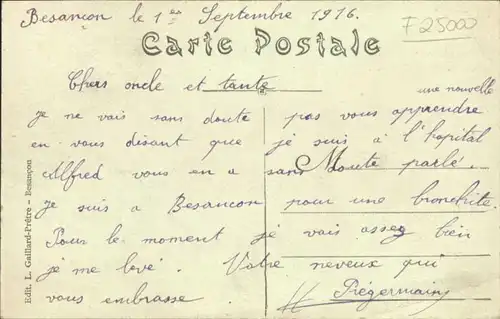 Besançon le 1er Septembre 1916.
F25000
Carte Postale
Chers oncle et tante
je ne vais sans doute pas vous apprendre une nouvelle
en vous disant que je suis à l'hopital
Alfred vous en a sans doute parlé.
je suis a Besançon pour une bronchite.
Pour le moment je vais assez bien
je me lève. Votre neveux qui
vous embrasse
Prégermain
M
Edit. L. Gaillard-Prêtre - Besançon